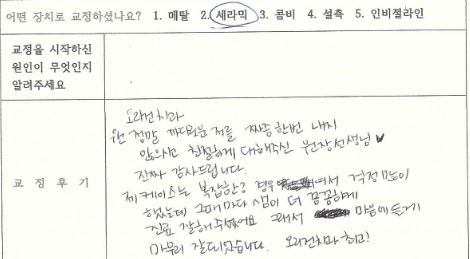 어떤 장치로 교정하셨나요? 1. 메탈 2. 세라믹 3. 콤비 4. 설측 5. 인비절라인
교정을 시작하신
원인이 무엇인지
알려주세요
교 정 후 기
오리건치과
완 정말 까다로운 저를 짜증한번 내지
않으시고 친절하게 대해주신 원장선생님
진짜 감사드립니다.
제 케이스는 복잡한? 경우 여서 걱정 많이
했는데 그때마다 쌤이 더 꼼꼼하게
진료 잘해주셨어요 그래서 마음에 들게
마무리 잘 되었습니다. 오리건치과 최고!